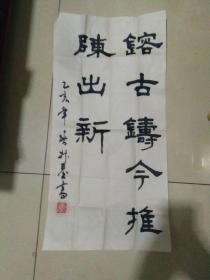 鎔古鑄今推
陳出新
乙亥年